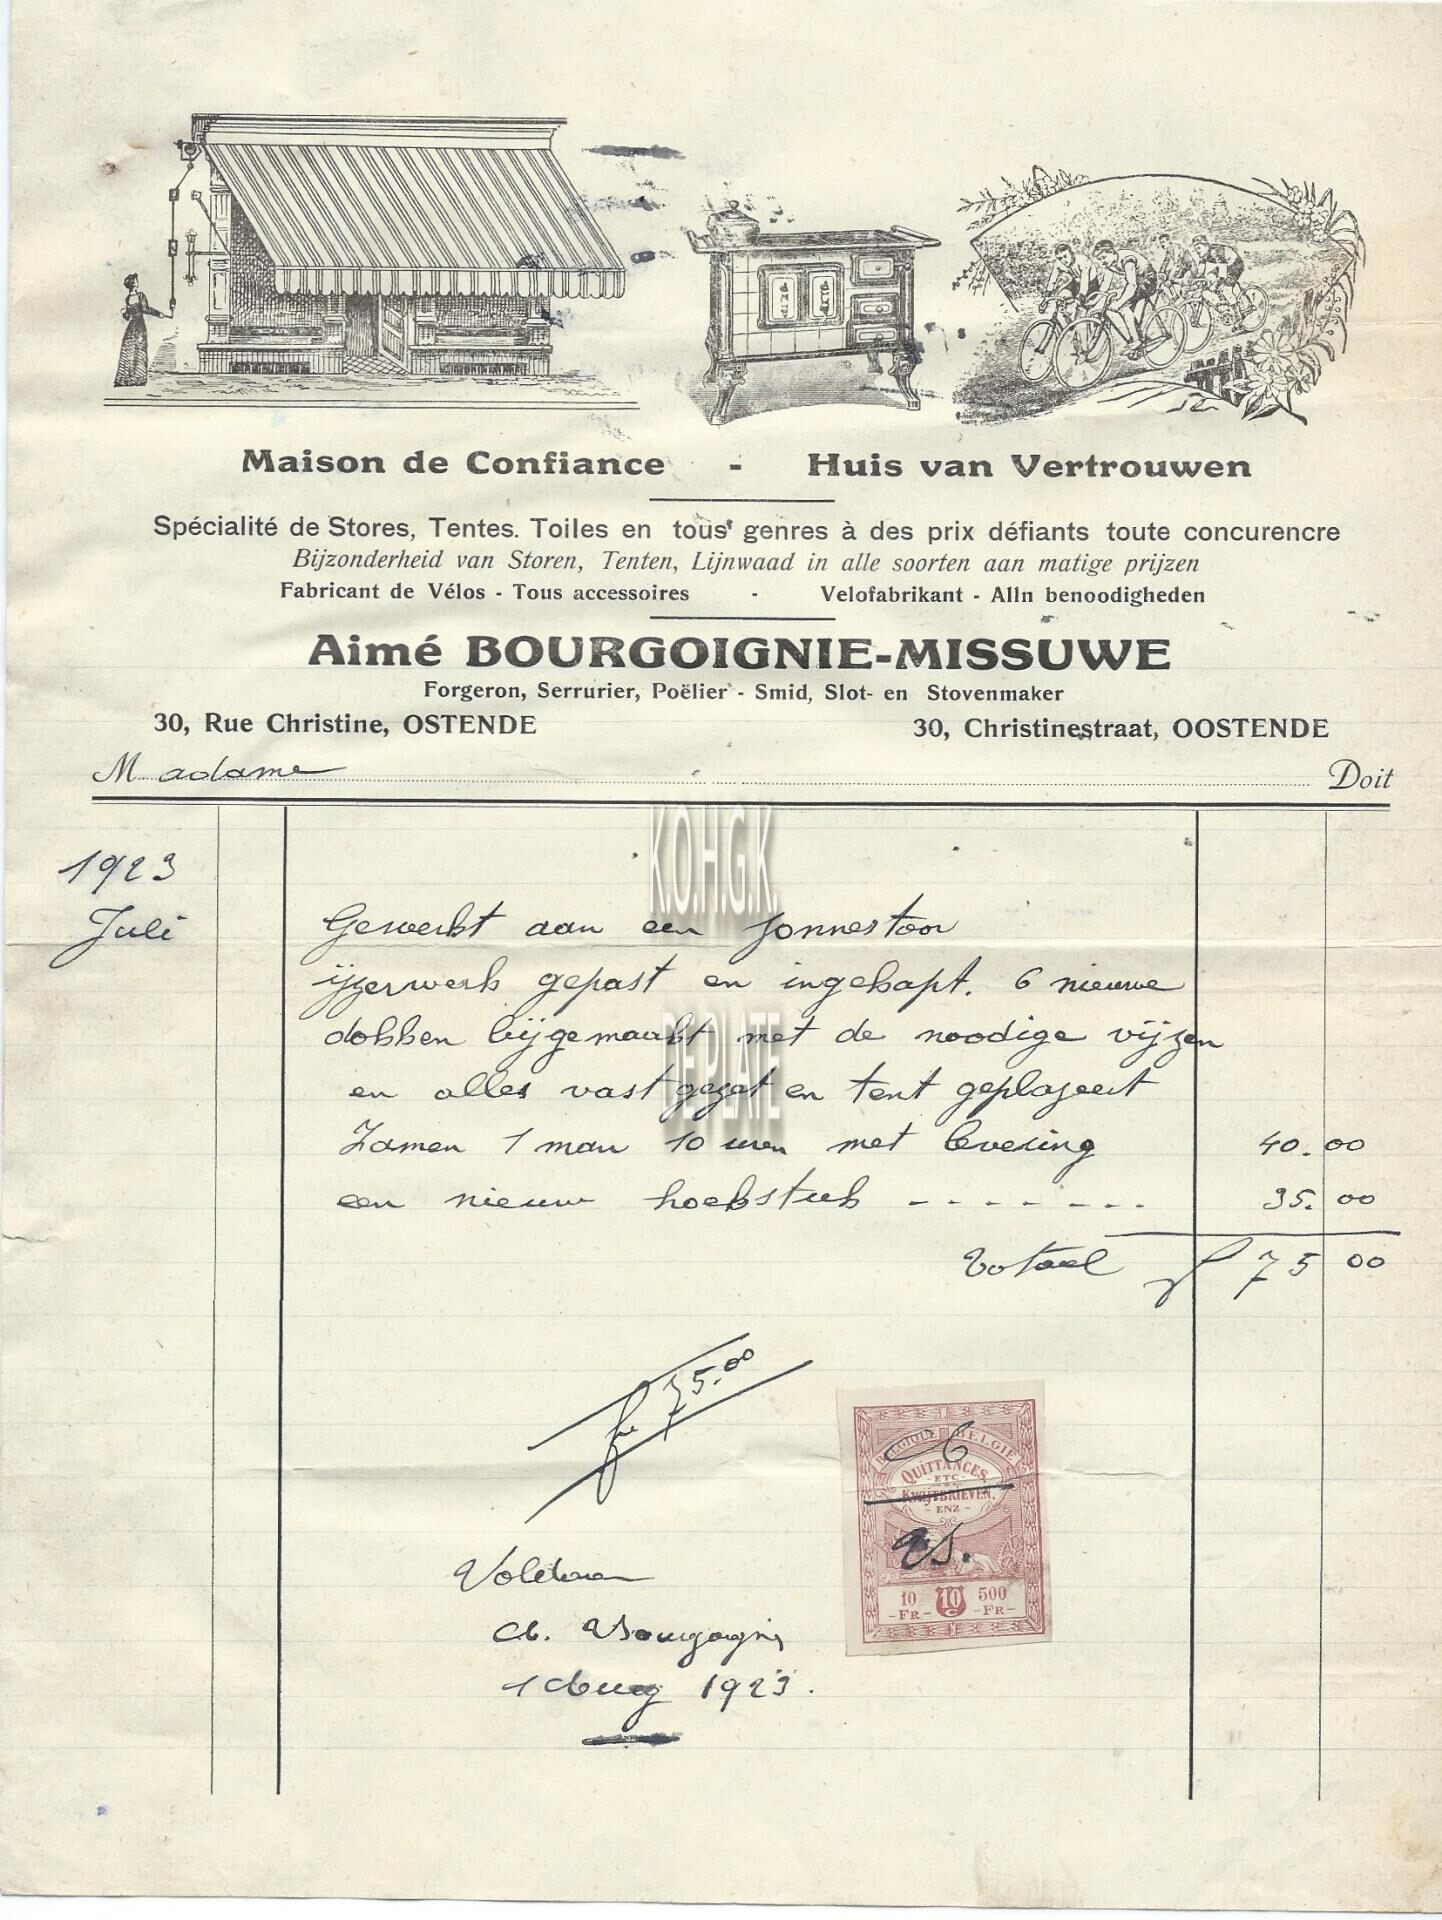 Maison de Confiance - Huis van Vertrouwen
Spécialité de Stores, Tentes. Toiles en tous genres à des prix défiants toute concurencre
Bijzonderheid van Storen, Tenten, Lijnwaad in alle soorten aan matige prijzen
Fabricant de Vélos - Tous accessoires - Velofabrikant - Alln benoodigheden
Aimé BOURGOIGNIE-MISSUWE
Forgeron, Serrurier, Poëlier - Smid, Slot- en Stovenmaker
30, Rue Christine, OSTENDE 30, Christinestraat, OOSTENDE
Madame Doit
K.O.H.G.K.
1923
Juli Gewerkt aan een zonnestoor
ijzerwerk gepast en ingekapt. 6 nieuwe
dobben bijgemaakt met de noodige vijzen
DE PLATE
en alles vast gezet en tent geplazeert
Zamen 1 man 10 uren met levering 40.00
een nieuw hoekstuk - - - - - - - 35.00
Totael fr 75 00
fr 75.00
BELGIQUE BELGIË
QUITTANCES,
- ETC -
KWIJTBRIEVEN,
- ENZ -
10 10 500
- FR - C - FR -
Voldaan
A. Bourgoignie
1 Aug 1923.